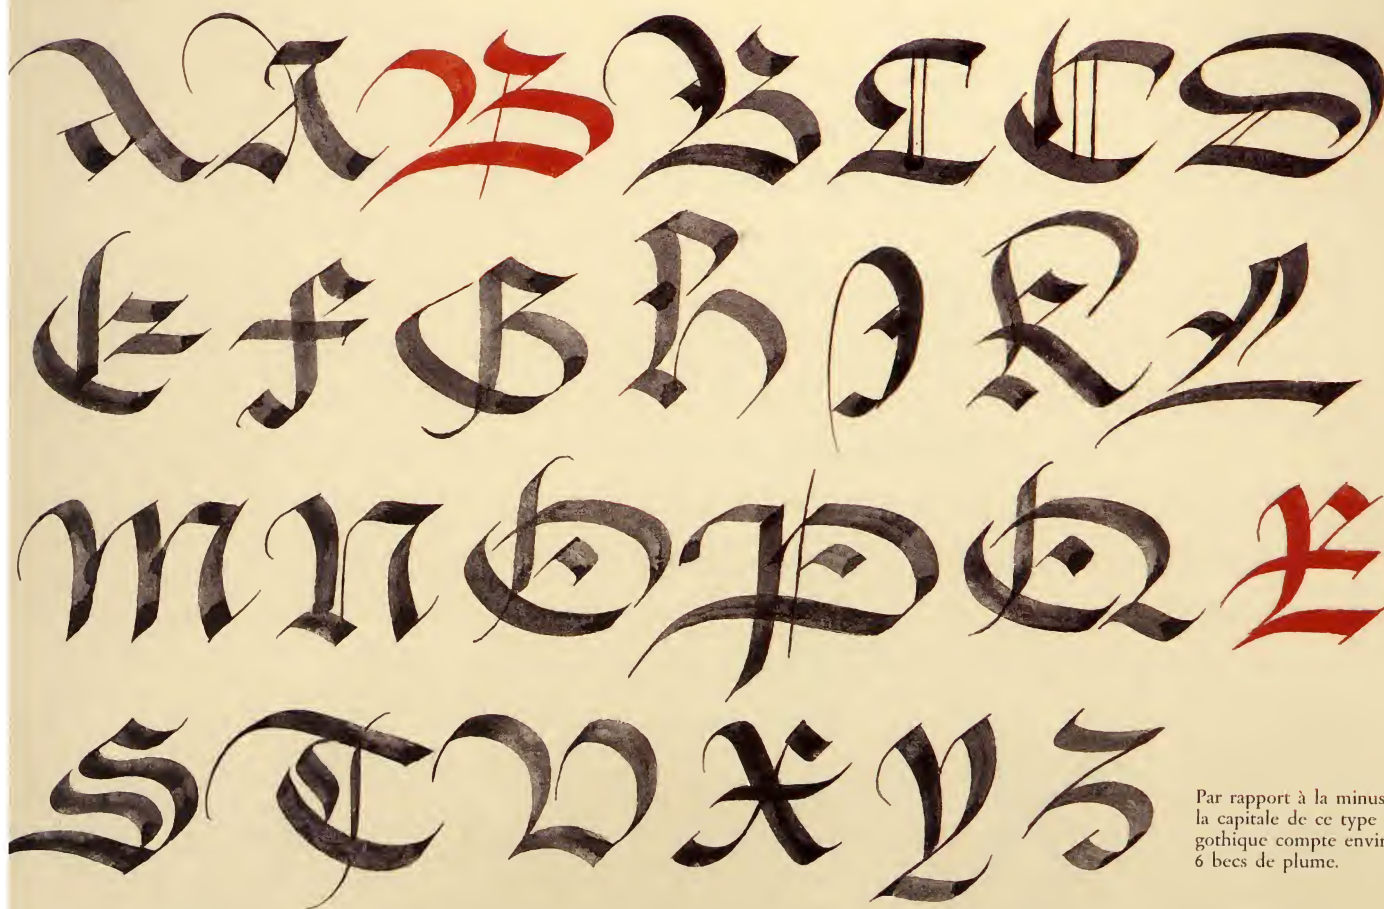 A A B B C C D
E F G H I K L
M N O P Q R
S T V X Y Z
Par rapport à la minus
la capitale de ce type
gothique compte envir
6 becs de plume.